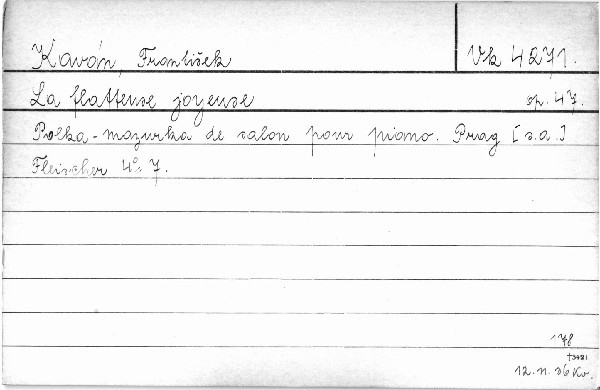 Kaván, František Vk 4271.
La flatteuse joyeuse op. 47.
Polka-mazurka de salon pour piano. Prag [s.a.]
Fleischer 4° 7.
178
†3481
12.11.56 Kv.